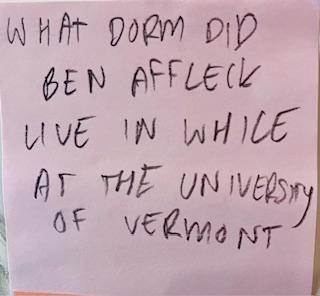 WHAT DORM DID
BEN AFFLECK
LIVE IN WHILE
AT THE UNIVERSITY
OF VERMONT